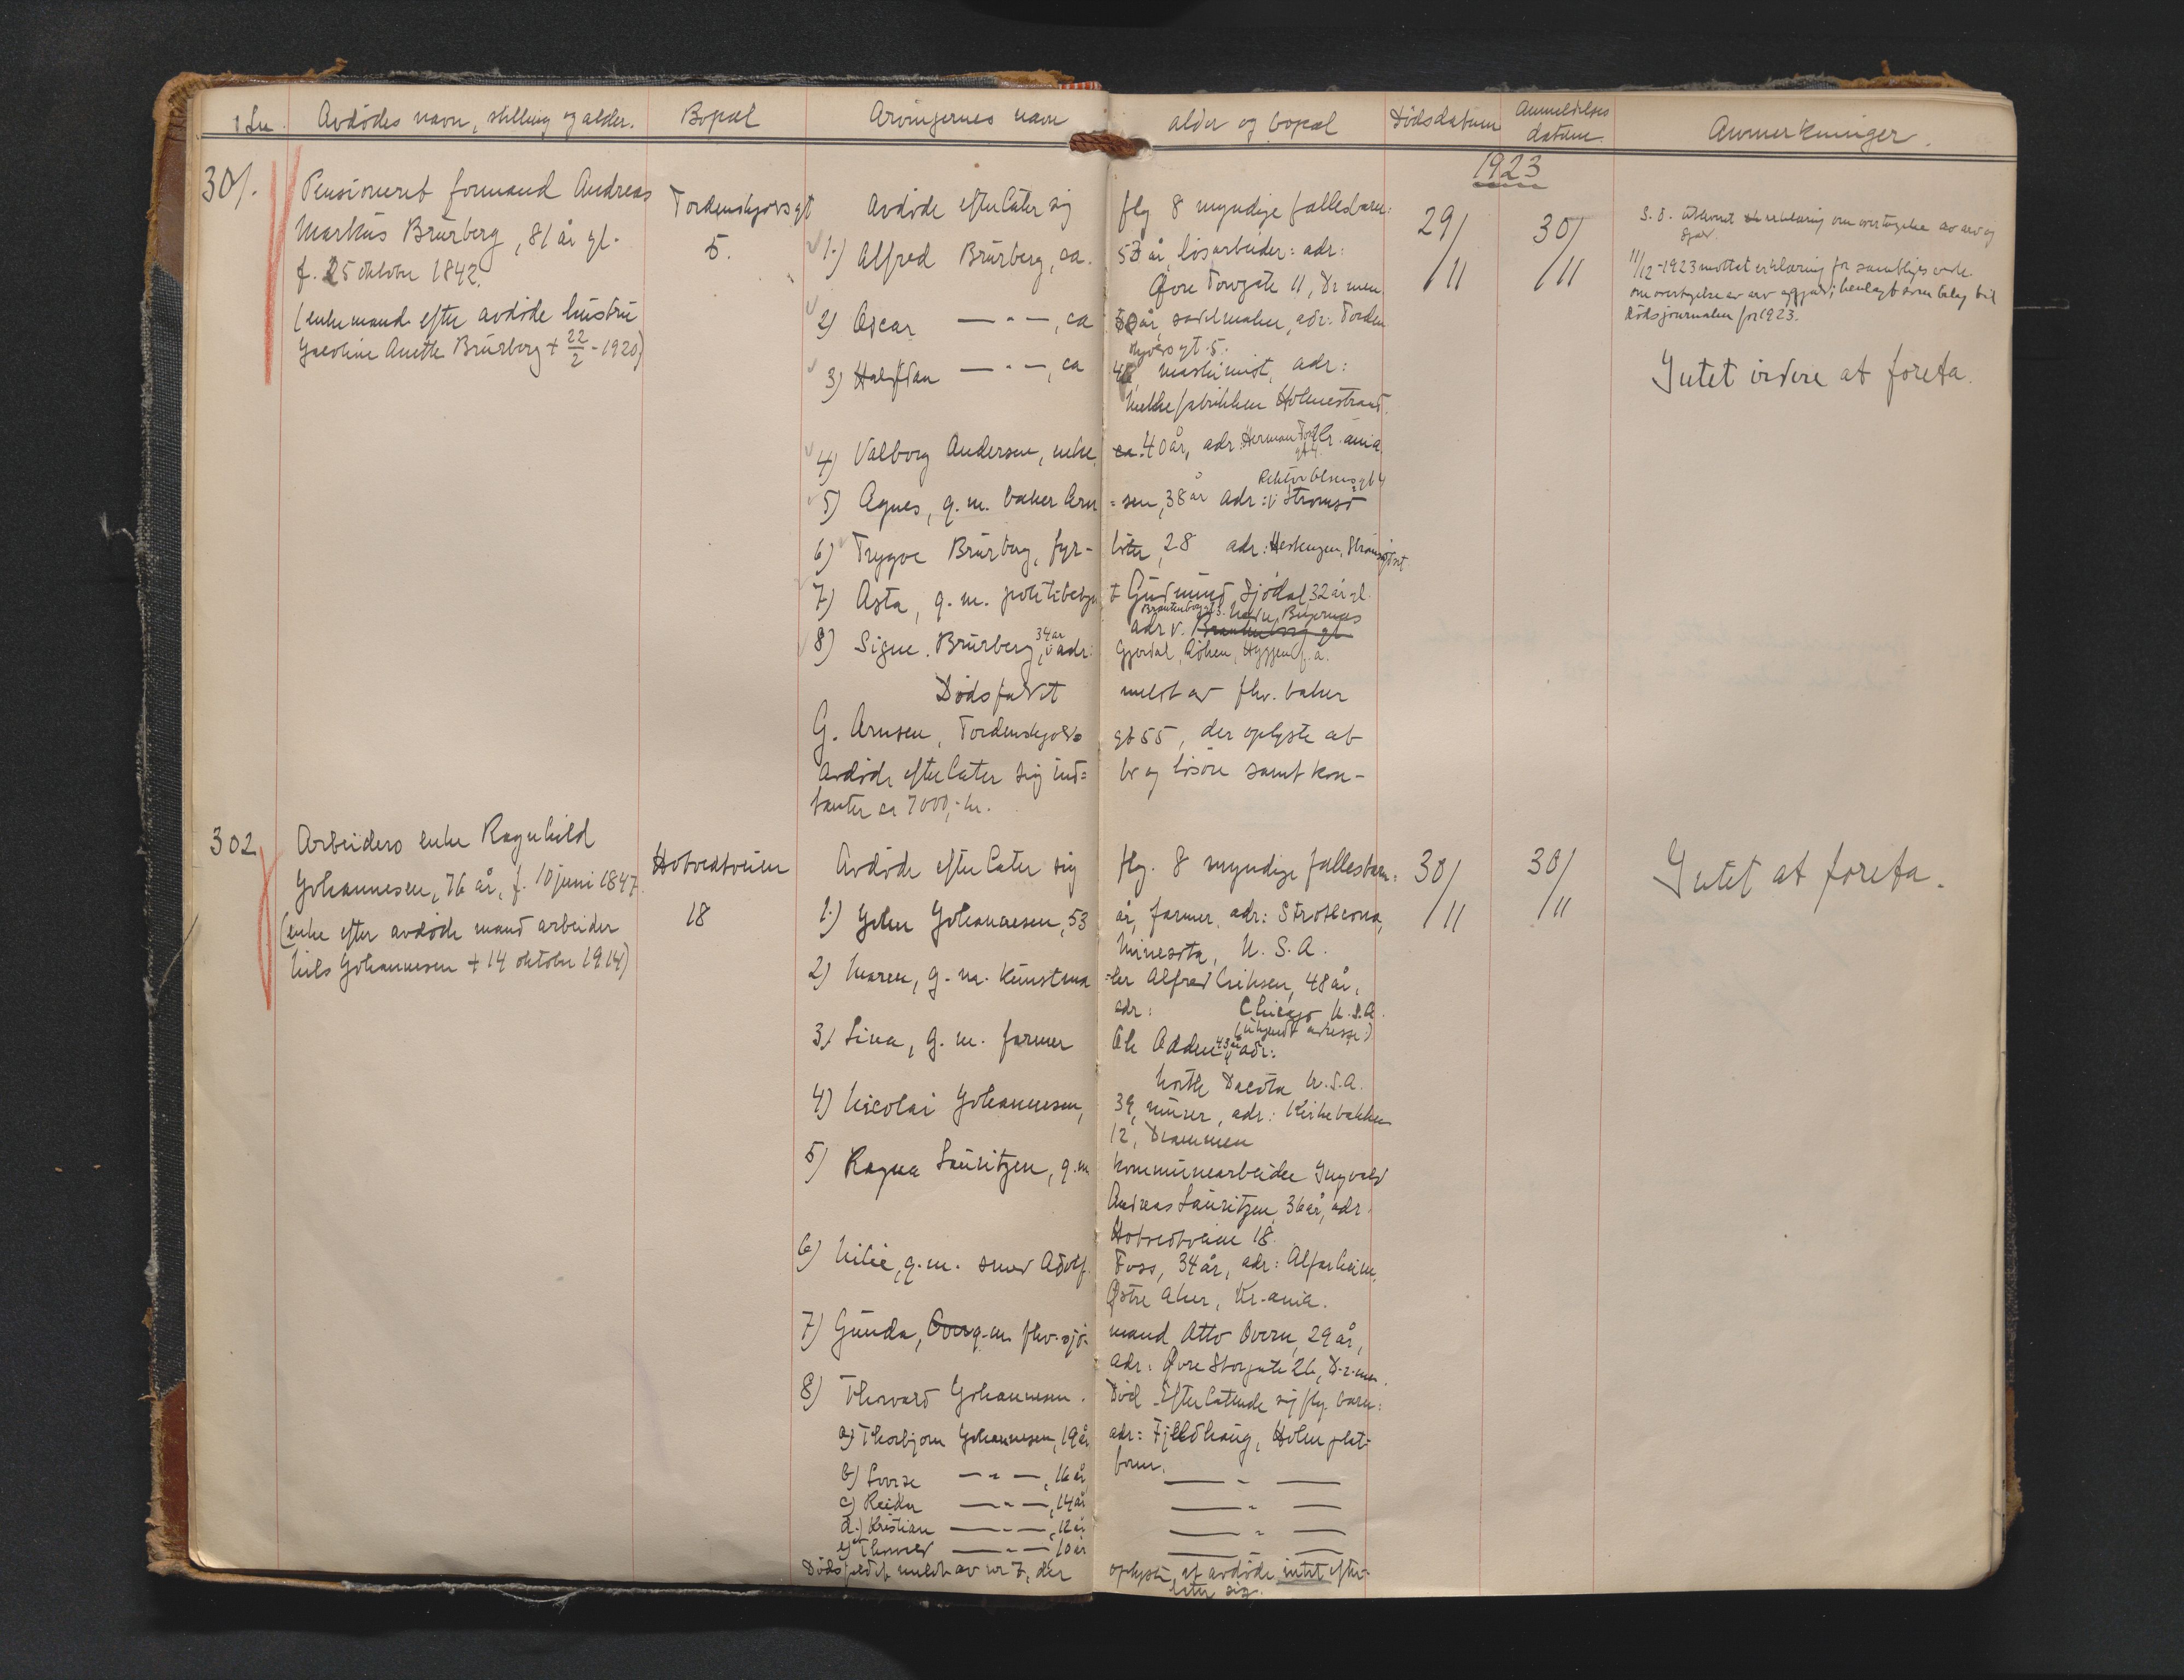 Avdødes navn, stilling og alder. Bopæl Arvingernes navn alder og bopæl Dødsdatum Anmeldelses datum Anmerkninger.
1923
301.
Pensioneret formand Andreas
Markus Brurberg, 81 år gl.
f. 25 oktober 1842.
(enkemand efter avdøde hustru
Jacobine Anette Brurberg + 22/2 - 1920)
Tordenskjolds gt
5.
Avdøde efterlater sig flg 8 myndige fællesbarn:
1.) Alfred Brurberg, ca. 53 år, løsarbeider: adr:
Øvre Torvgate 11, Dr.men
2) Oscar — " —, ca 50 år, sadelmaker, adr: Torden
skjolds gt. 5.
3) Halfdan — " —, ca 46, maskinist, adr:
Melkefabrikken Holmestrand.
4) Valborg Andersen, enke, ca. 40 år, adr. Herman Foss gt 4 Kr. ania.
5) Agnes, g. m. baker Arn = sen, 38 år adr: Rektor Olsens gt 4 Strømsø
6) Trygve Brurberg, fyr- bøter, 28 adr:
7) Asta, g. m. politibetjn t Gudmund Sjødal, 32 år gl.
adr v.
8) Signe Brurberg, 34 år adr:
Dødsfaldet meldt av fhv. baker
G. Arnsen, Tordenskjolds gt 55, der oplyste at
avdøde efterlater sig ind= bo og løsøre samt kon-
tanter ca 7000,- kr.
29/11
30/11
S. d. utlevert erklæring om overtagelse av arv og
gjæld.
11/12 - 1923 mottat erklæring fra samtlige
om overtagelse av arv og gjæld; henlagt som bilag til
dødsjournalen for 1923.
Intet videre at foreta.
302.
Arbeiders enke Ragnhild
Johannesen, 76 år, f. 10 juni 1847.
(enke efter avdøde mand arbeider
Nils Johannesen + 14 oktober 1914)
Hotvedtveien
18
Avdøde efterlater sig flg. 8 myndige fællesbarn:
1.) John Johannesen, 53 år, farmer, adr: Strathcona,
Minesota, U. S. A.
2) Maren, g. m. kunstma =ler Alfred Eriksen, 48 år,
adr: Chicago U. S. A.
(ukjendt adresse)
3) Lina, g. m. farmer Ole Odden 43 år adr:
North Dacota U. S. A.
4) Nicolai Johannesen, 39, murer, adr: Kirkebakken
12, Drammen
5) Ragna Lauritzen, g. m kommunearbeider Ingvald
Andreas Lauritzen, 36 år, adr.
Hotvedtveien 18.
6) Milie, g. m. smed Adolf Foss, 34 år, adr: Alfarheim,
Østre Aker, Kr.ania.
7) Gunda, g. m. fhv. sjø- mand Otto Overn, 29 år,
adr: Øvre Storgate 26, D-r-men.
8) Thorvard Johannesen. Død. Efterlatende sig flg. barn:
a) Thorbjørn Johannesen, 19 år adr: Fjeldhaug, Holm plat-
form.
b) Lovise — " —, 16 år — " —
c) Reidar — " —, 14 år — " —
d.) Kristian — " —, 12 år — " —
e) Thorvald — " — 10 år — " —
Dødsfaldet meldt av nr 7, der oplyste, at avdøde intet efter-
later sig.
30/11
30/11
Intet at foreta.